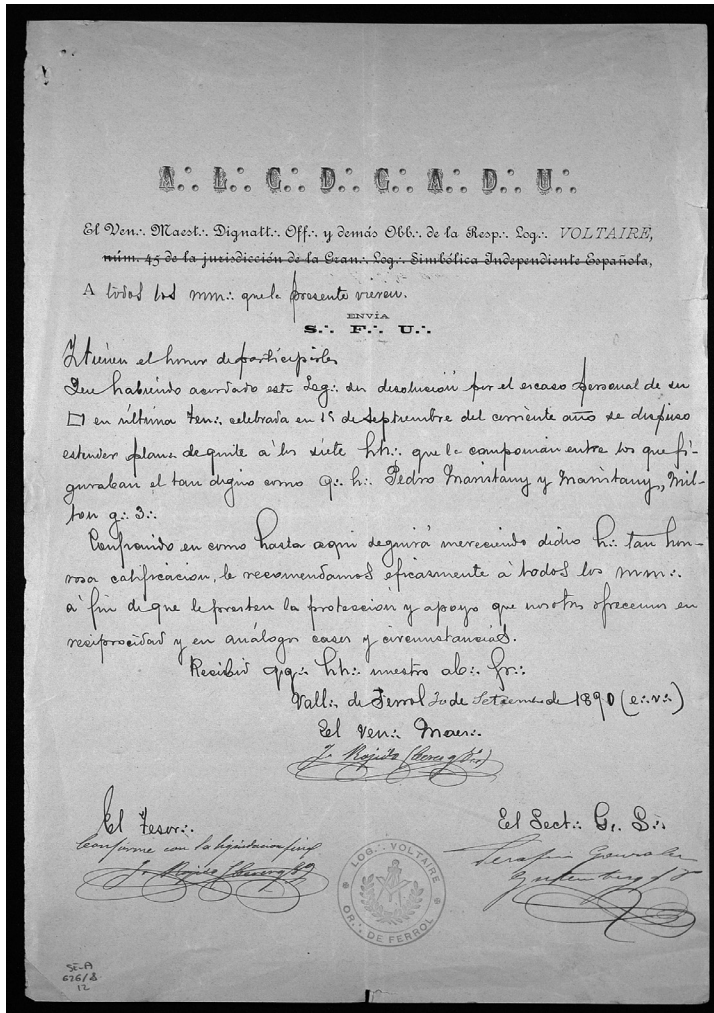 A∴ L∴ G∴ D∴ G∴ A∴ D∴ U∴
El Ven∴ Maest∴ Dignatt∴ Off∴ y demás Obb∴ de la Resp∴ Log∴ VOLTAIRE,
núm. 45 de la jurisdicción de la Gran∴ Log∴ Simbólica Independiente Española,
A todos los mm∴ que la presente vieren.
ENVÍA
S∴ F∴ U∴
Y tienen el honor de participarles
Que habiendo acordado esta Log∴ su disolución por el escaso personal de su
□ en última Ten∴ celebrada en 15 de Septiembre del corriente año se dispuso
estender plan∴ de quite á los siete hh∴ que la componian entre los que fi-
guraban el tan digno como q∴ h∴ Pedro Maristany y Maristany, Mil-
ton g∴ 3∴
Confiando en como hasta aqui seguirá mereciendo dicho h∴ tan hon-
rosa calificacion, le recomendamos eficasmente á todos los mm∴
á fin de que le presten la protección y apoyo que nosotros ofrecemos en
reciprocidad y en análogos casos y circunstancias.
Recibid qq∴ hh∴ nuestro ab∴ fr∴
Vall∴ de Ferrol 30 de Setiembre de 1890 (e∴ v∴)
El Ven∴ Maes∴
J. Rojido
El Tesor∴
Conforme con la liquidacion
J. Rojido
El Sect∴ G. S∴
Serafin Gonzalez
Gutemberg
LOG∴ VOLTAIRE
OR∴ DE FERROL
SE-A
626/8
12